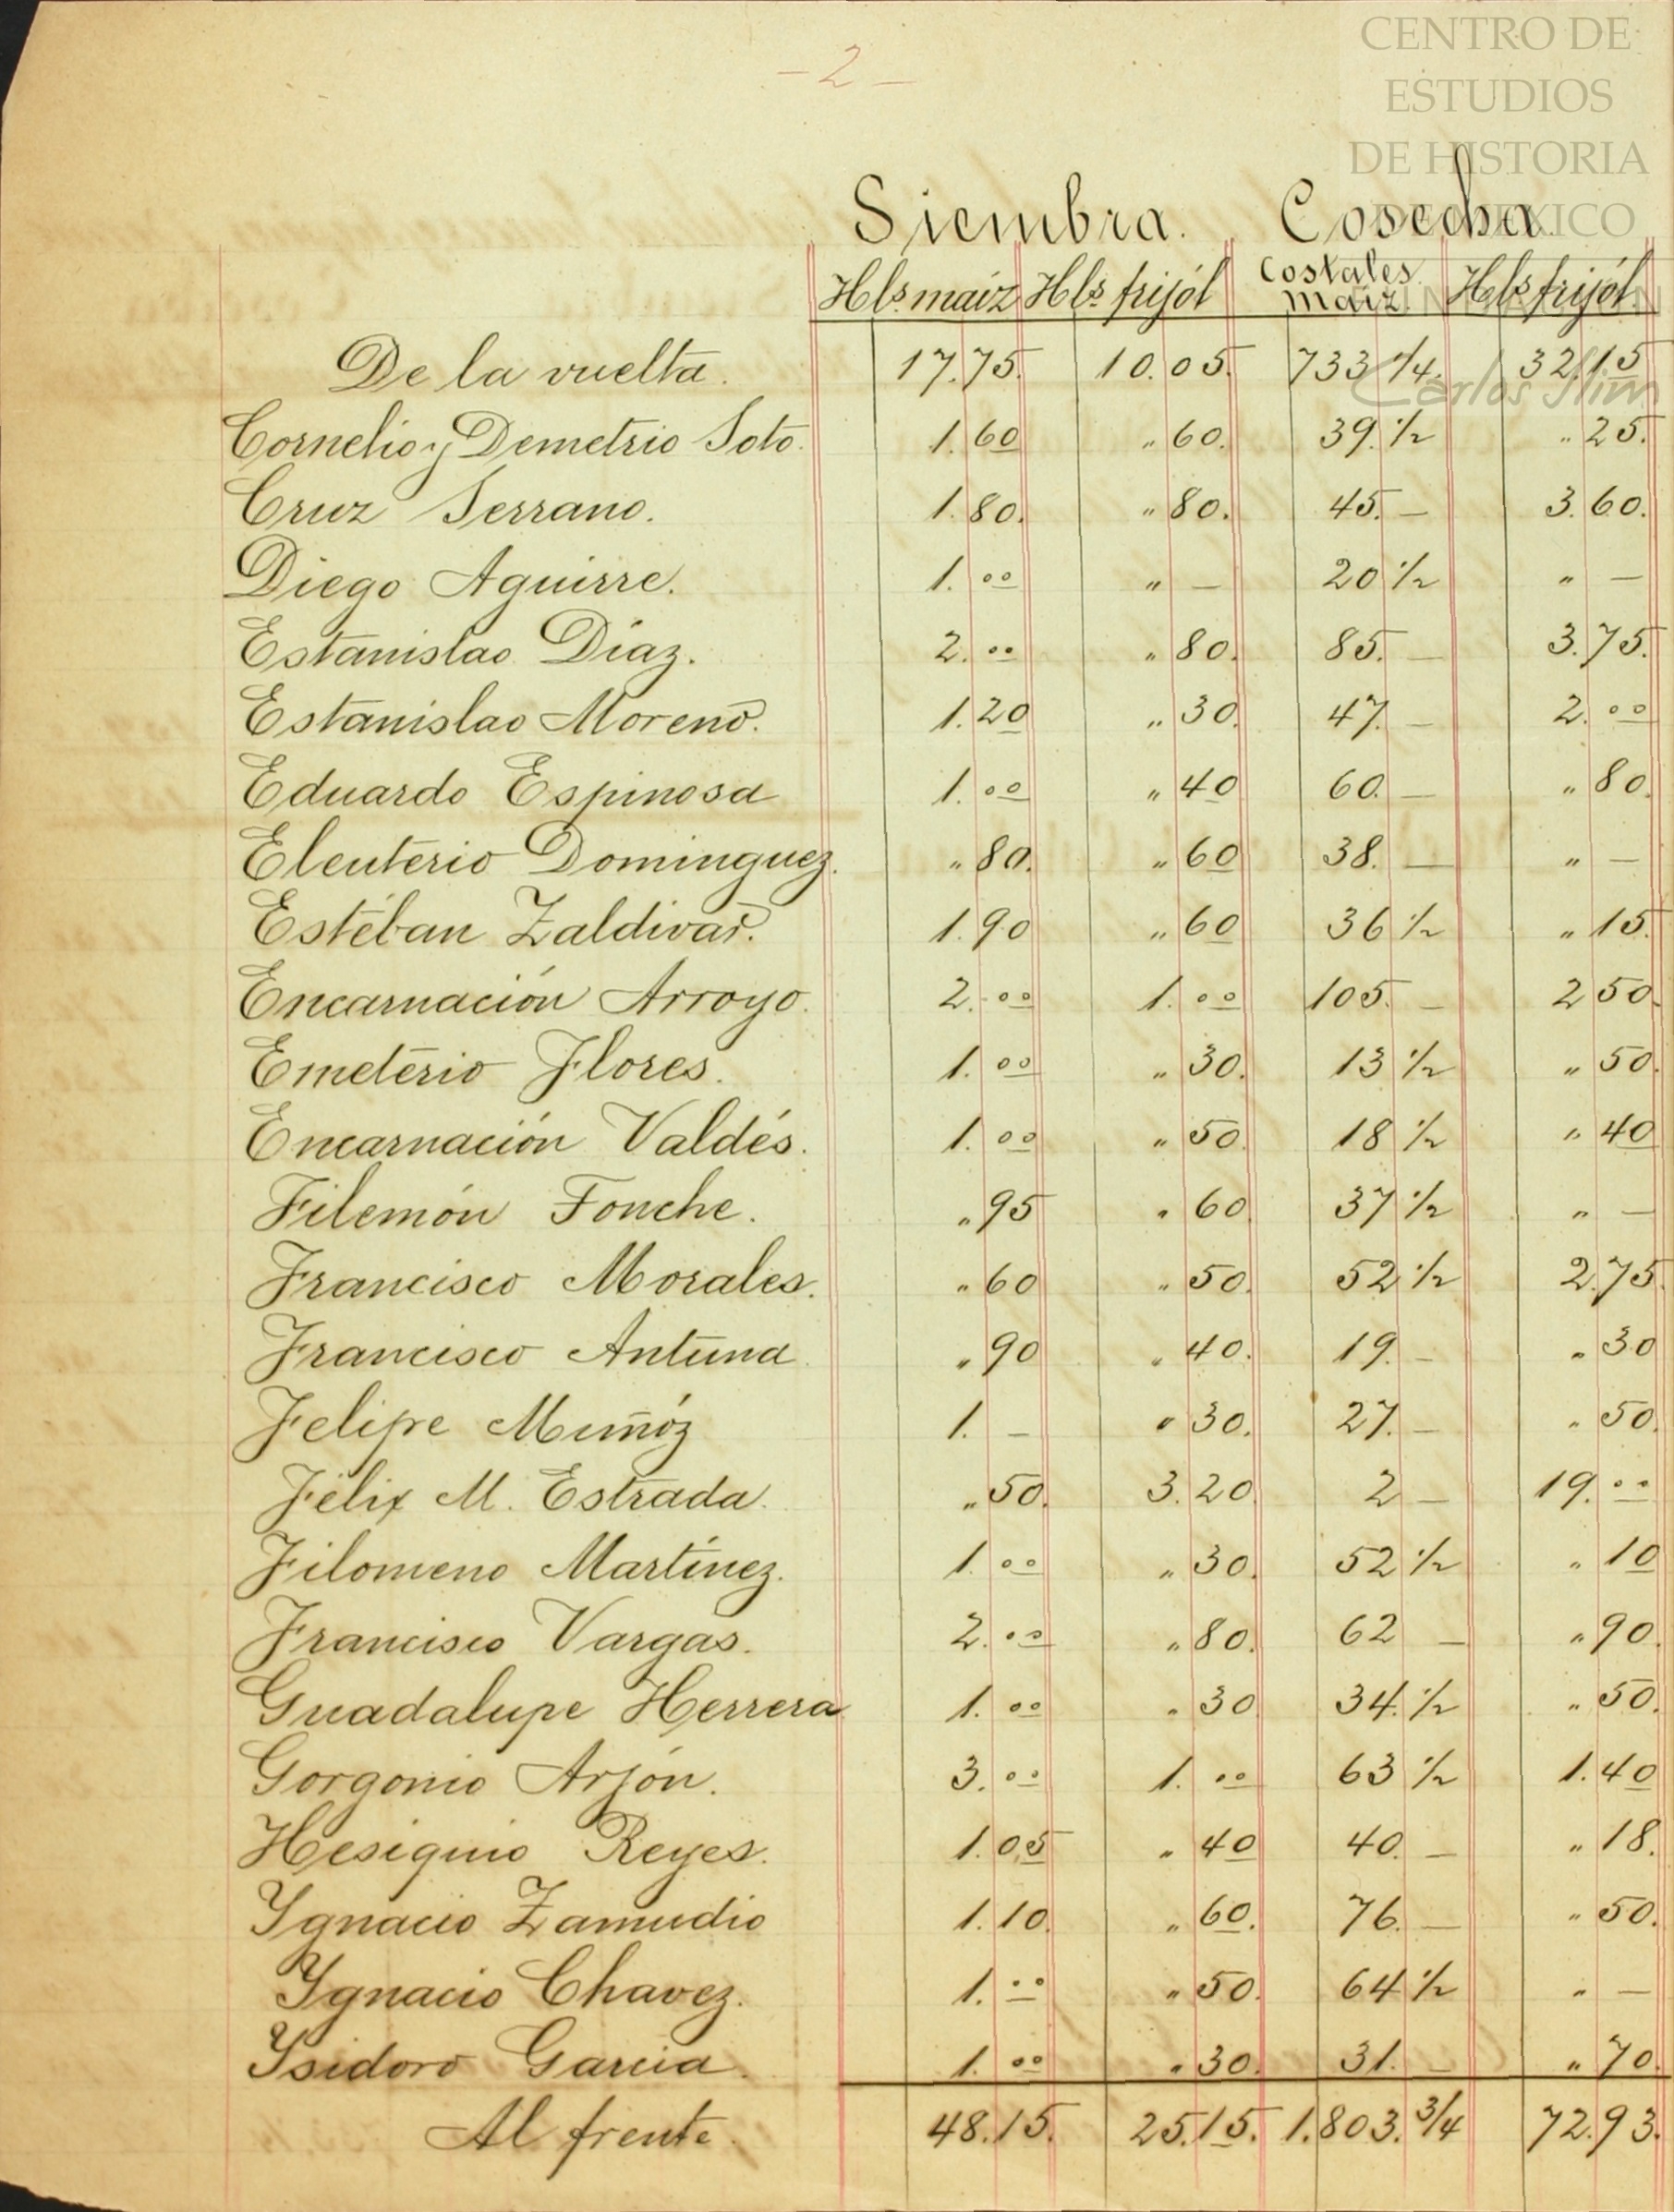 CENTRO DE
ESTUDIOS
DE HISTORIA
DE MEXICO
Carlos Slim
- 2 -
Siembra. Cosecha
Hls. maíz Hls frijól Costales maíz. Hls frijól
De la vuelta. 17.75. 10.05. 733 1/4. 32.15
Cornelio y Demetrio Soto. 1.60 " 60. 39. 1/2 " 25.
Cruz Serrano. 1.80. " 80. 45. — 3.60.
Diego Aguirre. 1. 00 " — 20 1/2 " —
Estanislao Díaz. 2. 00 " 80. 85. — 3.75.
Estanislao Moreno. 1.20 " 30. 47. — 2. 00
Eduardo Espinosa 1. 00 " 40 60. — " 80.
Eleuterio Dominguez. " 80. " 60 38. — " —
Estéban Zaldivar. 1.90 " 60 36 1/2 " 15.
Encarnación Arroyo. 2. 00 1. 00 105. — 2 50.
Emeterio Flores. 1. 00 " 30. 13 1/2 " 50.
Encarnación Valdés. 1. 00 " 50. 18 1/2 " 40
Filemón Fonche. " 95 " 60 37 1/2 " —
Francisco Morales. " 60 " 50. 52 1/2 2.75.
Francisco Antuna. " 90 " 40. 19. — " 30
Felipe Muñóz 1. — " 30. 27. — " 50.
Félix M. Estrada. " 50. 3.20. 2 — 19. 00
Filomeno Martínez. 1. 00 " 30. 52 1/2 " 10
Francisco Vargas. 2. 00 " 80. 62 — " 90.
Guadalupe Herrera 1. 00 " 30 34. 1/2 " 50.
Gorgonio Arjón. 3. 00 1. 00 63 1/2 1.40
Hesiquio Reyes. 1.05 " 40 40. — " 18.
Ygnacio Zamudio 1.10. " 60. 76. — " 50.
Ygnacio Chavez. 1. 00 " 50. 64 1/2 " —
Ysidoro Garcia. 1. 00 " 30. 31. — " 70.
Al frente. 48.15. 25.15. 1.803. 3/4 72.93.